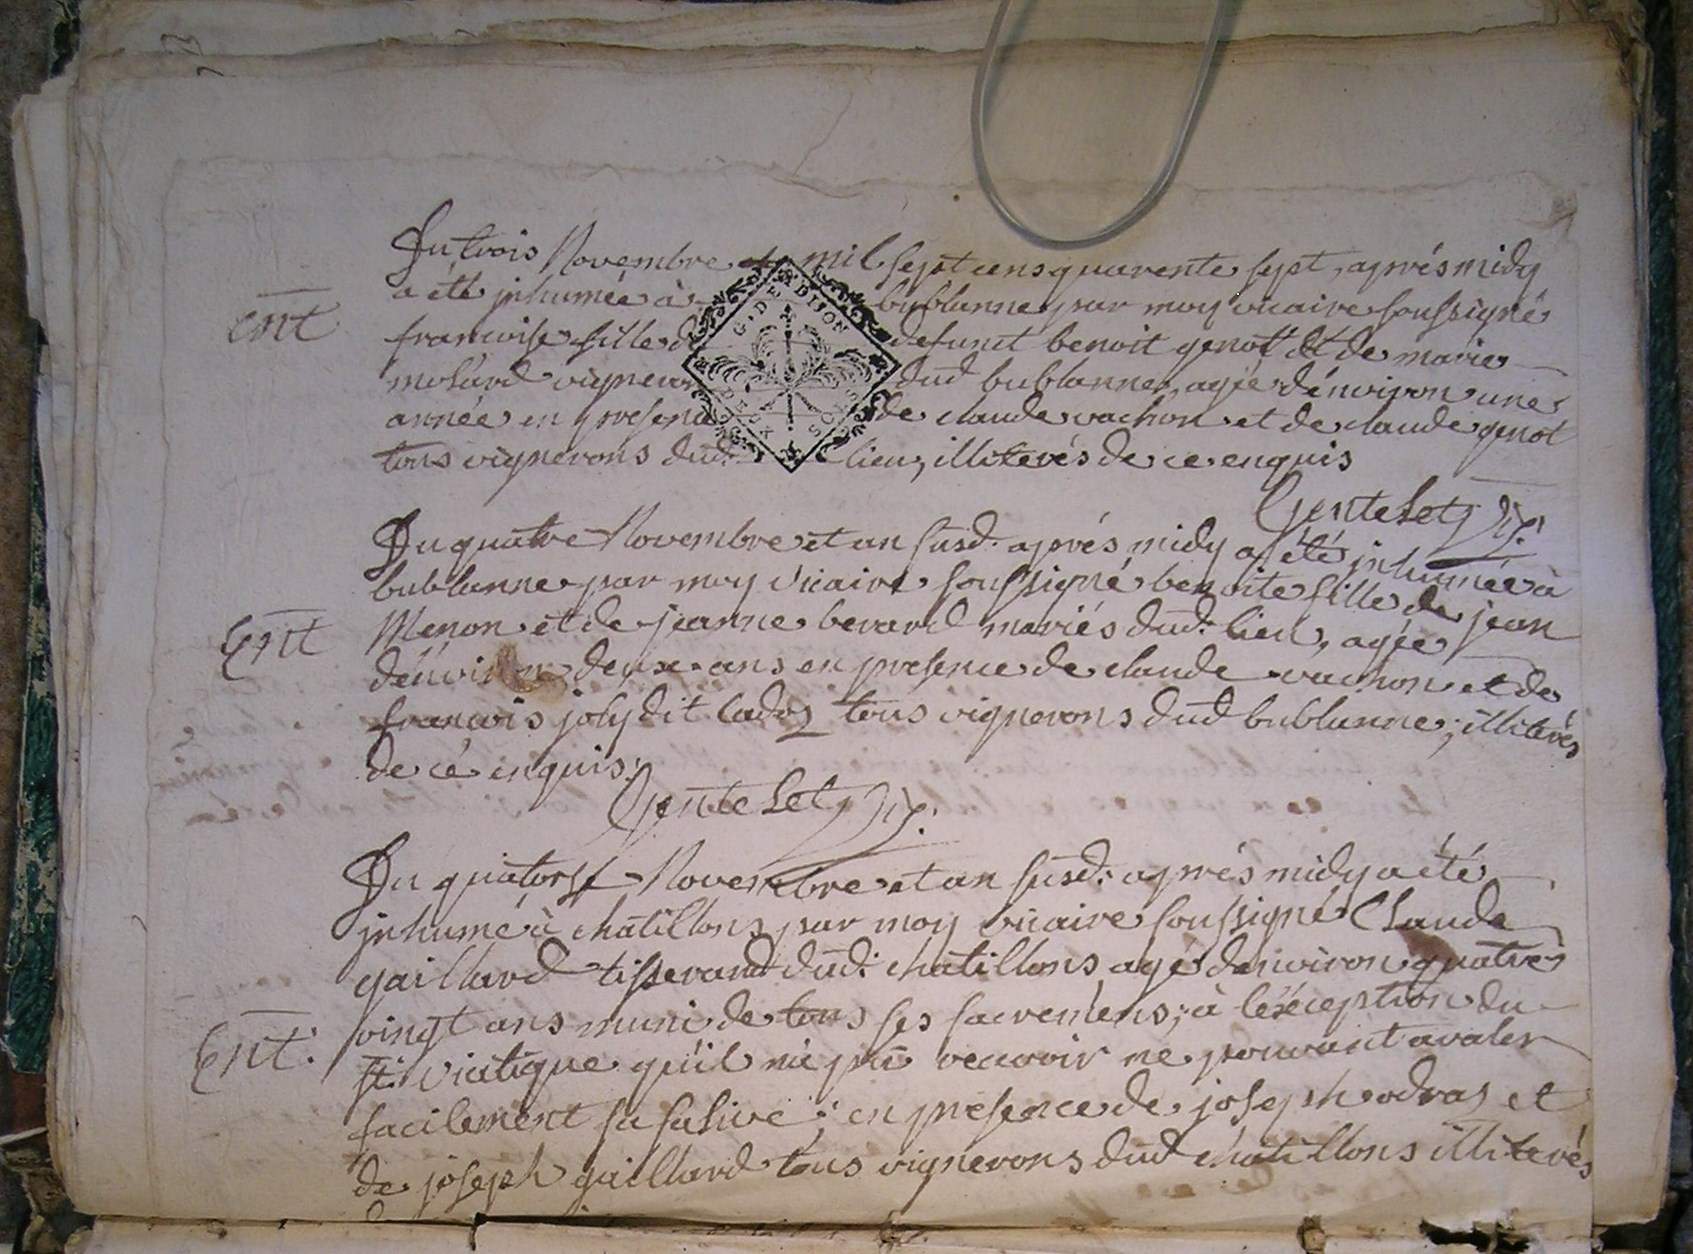 Du trois Novembre mil sept cens quarente sept, aprés midy
a été jnhumée à bublanne par moy vicaire soussigné
ent
francoise fille de defunct benoit genot et de marie
molard vigneron dud bublanne, agée d'énviron une
année en presence de claude vachon et de claude genot
tous vignerons dud. lieu, illiterés de ce enquis
Gentelet vic.
Du quatre Novembre et an susd. aprés midy a été jnhumée à
bublanne par moy vicaire soussigné benoite fille de jean
Ent
Menon et de jeanne berard mariés dud. lieu, agée
d'énviron deux ans en presence de claude vachon et de
francois joly dit tous vignerons dud bublanne, illiterés
de cé enquis.
Gentelet vic.
Du quatorse Novembre et an susd. aprés midy a été
jnhumé à chatillons par moy vicaire soussigné Claude
gaillard tisserand dud. chatillons agé d'environ quatre
vingt ans muni de tous ses sacremens, à l'exéception du
Ent.
st. viatique qu'il n'a pû recevoir ne pouvant avaler
facilement sa salive; en presence de joseph odras et
de joseph gaillard tous vignerons dud chatillons illiterés